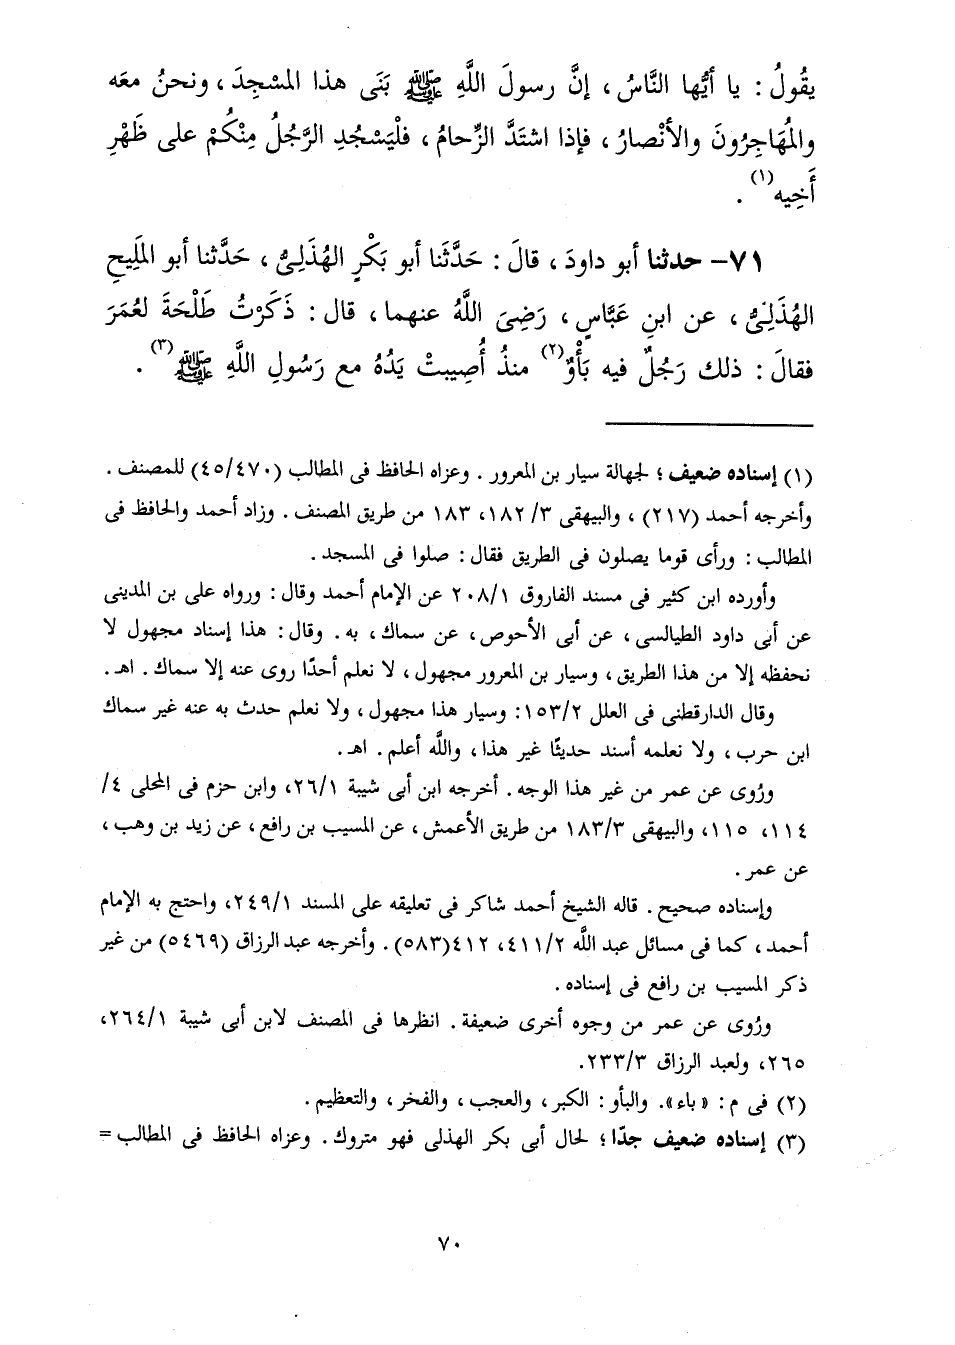 يقُولُ : يا أيُّها النَّاسُ ، إنَّ رسولَ اللَّهِ ﷺ بَنَى هذا المسْجِدَ ، ونحنُ معَه
والمُهَاجِرُونَ والأنْصارُ ، فإذا اشتَدَّ الزِّحامُ ، فلْيَسْجُدِ الرَّجُلُ مِنْكُمْ على ظَهْرِ
أَخِيه(١) .
٧١- حدثنا أبو داودَ ، قالَ : حَدَّثَنا أبو بَكْرٍ الهُذَلِىُّ ، حَدَّثنا أبو المَلِيحِ
الهُذَلِىُّ ، عن ابنِ عَبَّاسٍ ، رَضِىَ اللَّهُ عنهما ، قال : ذَكَرْتُ طَلْحَةَ لعُمَرَ
فقالَ : ذلك رَجُلٌ فيه بَأْوٌ(٢) منذُ أُصِيبتْ يَدُهُ مع رَسُولِ اللَّهِ ﷺ(٣) .
(١) إسناده ضعيف ؛ لجهالة سيار بن المعرور . وعزاه الحافظ فى المطالب (٤٥/٤٧٠) للمصنف .
وأخرجه أحمد (٢١٧) ، والبيهقى ٣/ ١٨٢، ١٨٣ من طريق المصنف . وزاد أحمد والحافظ فى
المطالب : ورأى قوما يصلون فى الطريق فقال : صلوا فى المسجد .
وأورده ابن كثير فى مسند الفاروق ٢٠٨/١ عن الإمام أحمد وقال : ورواه على بن المدينى
عن أبى داود الطيالسى ، عن أبى الأحوص ، عن سماك ، به . وقال : هذا إسناد مجهول لا
نحفظه إلا من هذا الطريق ، وسيار بن المعرور مجهول ، لا نعلم أحدًا روى عنه إلا سماك . اهـ .
وقال الدارقطنى فى العلل ١٥٣/٢: وسيار هذا مجهول ، ولا نعلم حدث به عنه غير سماك
ابن حرب ، ولا نعلمه أسند حديثًا غير هذا ، واللَّه أعلم . اهـ .
ورُوى عن عمر من غير هذا الوجه . أخرجه ابن أبى شيبة ٢٦/١، وابن حزم فى المحلى ٤/
١١٤، ١١٥، والبيهقى ١٨٣/٣ من طريق الأعمش ، عن المسيب بن رافع ، عن زيد بن وهب ،
عن عمر .
وإسناده صحيح . قاله الشيخ أحمد شاكر فى تعليقه على المسند ٢٤٩/١، واحتج به الإمام
أحمد ، كما فى مسائل عبد اللَّه ٤١١/٢، ٤١٢(٥٨٣) . وأخرجه عبد الرزاق (٥٤٦٩) من غير
ذكر المسيب بن رافع فى إسناده .
ورُوى عن عمر من وجوه أخرى ضعيفة . انظرها فى المصنف لابن أبى شيبة ٢٦٤/١،
٢٦٥، ولعبد الرزاق ٢٣٣/٣.
(٢) فى م : « باء » . والبأو : الكبر ، والعجب ، والفخر ، والتعظيم .
(٣) إسناده ضعيف جدًا ؛ لحال أبى بكر الهذلى فهو متروك . وعزاه الحافظ فى المطالب =
٧٠